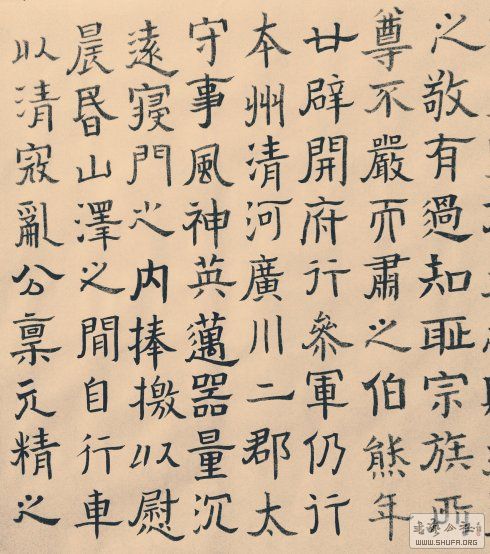 之敬有過知耻宗族
尊不嚴而肅之伯熊年
廿辟開府行參軍仍行
本州清河廣川二郡太
守事風神英邁器量沉
遠寢門之内捧檄以慰
晨昬山澤之間自行車
以清寇亂公禀元精之
书艺公社
WWW.SHUFA.ORG